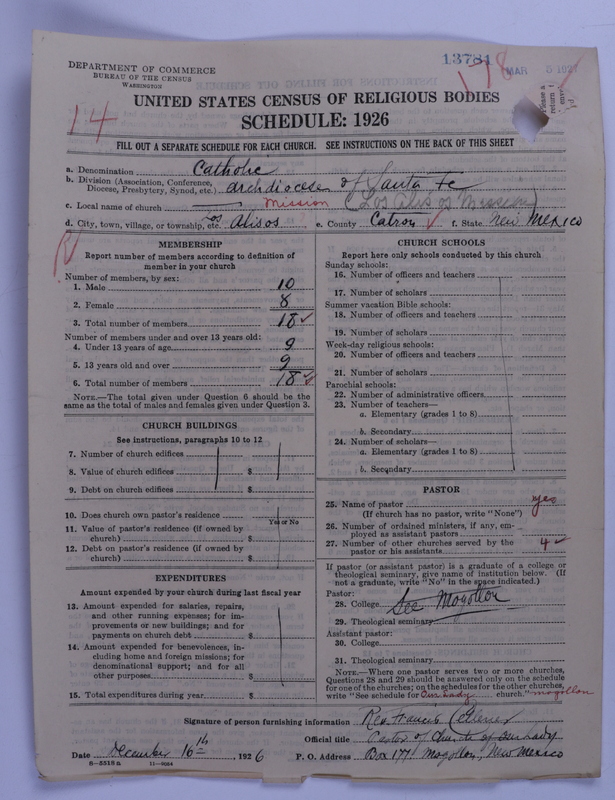 DEPARTMENT OF COMMERCE
BUREAU OF THE CENSUS
WASHINGTON
13781
178
MAR 5 1927
14
UNITED STATES CENSUS OF RELIGIOUS BODIES
SCHEDULE: 1926
FILL OUT A SEPARATE SCHEDULE FOR EACH CHURCH. SEE INSTRUCTIONS ON THE BACK OF THIS SHEET
a. Denomination Catholic
b. Division (Association, Conference, Diocese, Presbytery, Synod, etc.) archdiocese of Santa Fe
c. Local name of church Mission (Los Alisos Mission)
d. City, town, village, or township, etc. Los Alisos e. County Catron f. State New Mexico
MEMBERSHIP
Report number of members according to definition of
member in your church
Number of members, by sex:
1. Male 10
2. Female 8
3. Total number of members 18
Number of members under and over 13 years old:
4. Under 13 years of age 9
5. 13 years old and over 9
6. Total number of members 18
NOTE.—The total given under Question 6 should be the
same as the total of males and females given under Question 3.
CHURCH BUILDINGS
See instructions, paragraphs 10 to 12
7. Number of church edifices
8. Value of church edifices $
9. Debt on church edifices $
10. Does church own pastor's residence
Yes or No
11. Value of pastor's residence (if owned by
church) $
12. Debt on pastor's residence (if owned by
church) $
EXPENDITURES
Amount expended by your church during last fiscal year
13. Amount expended for salaries, repairs,
and other running expenses; for im-
provements or new buildings; and for
payments on church debt $
14. Amount expended for benevolences, in-
cluding home and foreign missions; for
denominational support; and for all
other purposes $
15. Total expenditures during year $
CHURCH SCHOOLS
Report here only schools conducted by this church
Sunday schools:
16. Number of officers and teachers
17. Number of scholars
Summer vacation Bible schools:
18. Number of officers and teachers
19. Number of scholars
Week-day religious schools:
20. Number of officers and teachers
21. Number of scholars
Parochial schools:
22. Number of administrative officers
23. Number of teachers—
a. Elementary (grades 1 to 8)
b. Secondary
24. Number of scholars—
a. Elementary (grades 1 to 8)
b. Secondary
PASTOR
25. Name of pastor yes
(If church has no pastor, write "None")
26. Number of ordained ministers, if any, em-
ployed as assistant pastors
27. Number of other churches served by the
pastor or his assistants 4
If pastor (or assistant pastor) is a graduate of a college or
theological seminary, give name of institution below. (If
not a graduate, write "No" in the space indicated.)
Pastor:
28. College See Mogollon
29. Theological seminary
Assistant pastor:
30. College
31. Theological seminary
NOTE.—Where one pastor serves two or more churches,
Questions 28 and 29 should be answered only on the schedule
for one of the churches; on the schedules for the other churches,
write "See schedule for Our Lady church." mogollon
Signature of person furnishing information Rev. Francis
Official title Pastor of Church of Our Lady
Date December 16th, 1926 P. O. Address Box 177, Mogollon, New Mexico
8—5518 a 11—9034